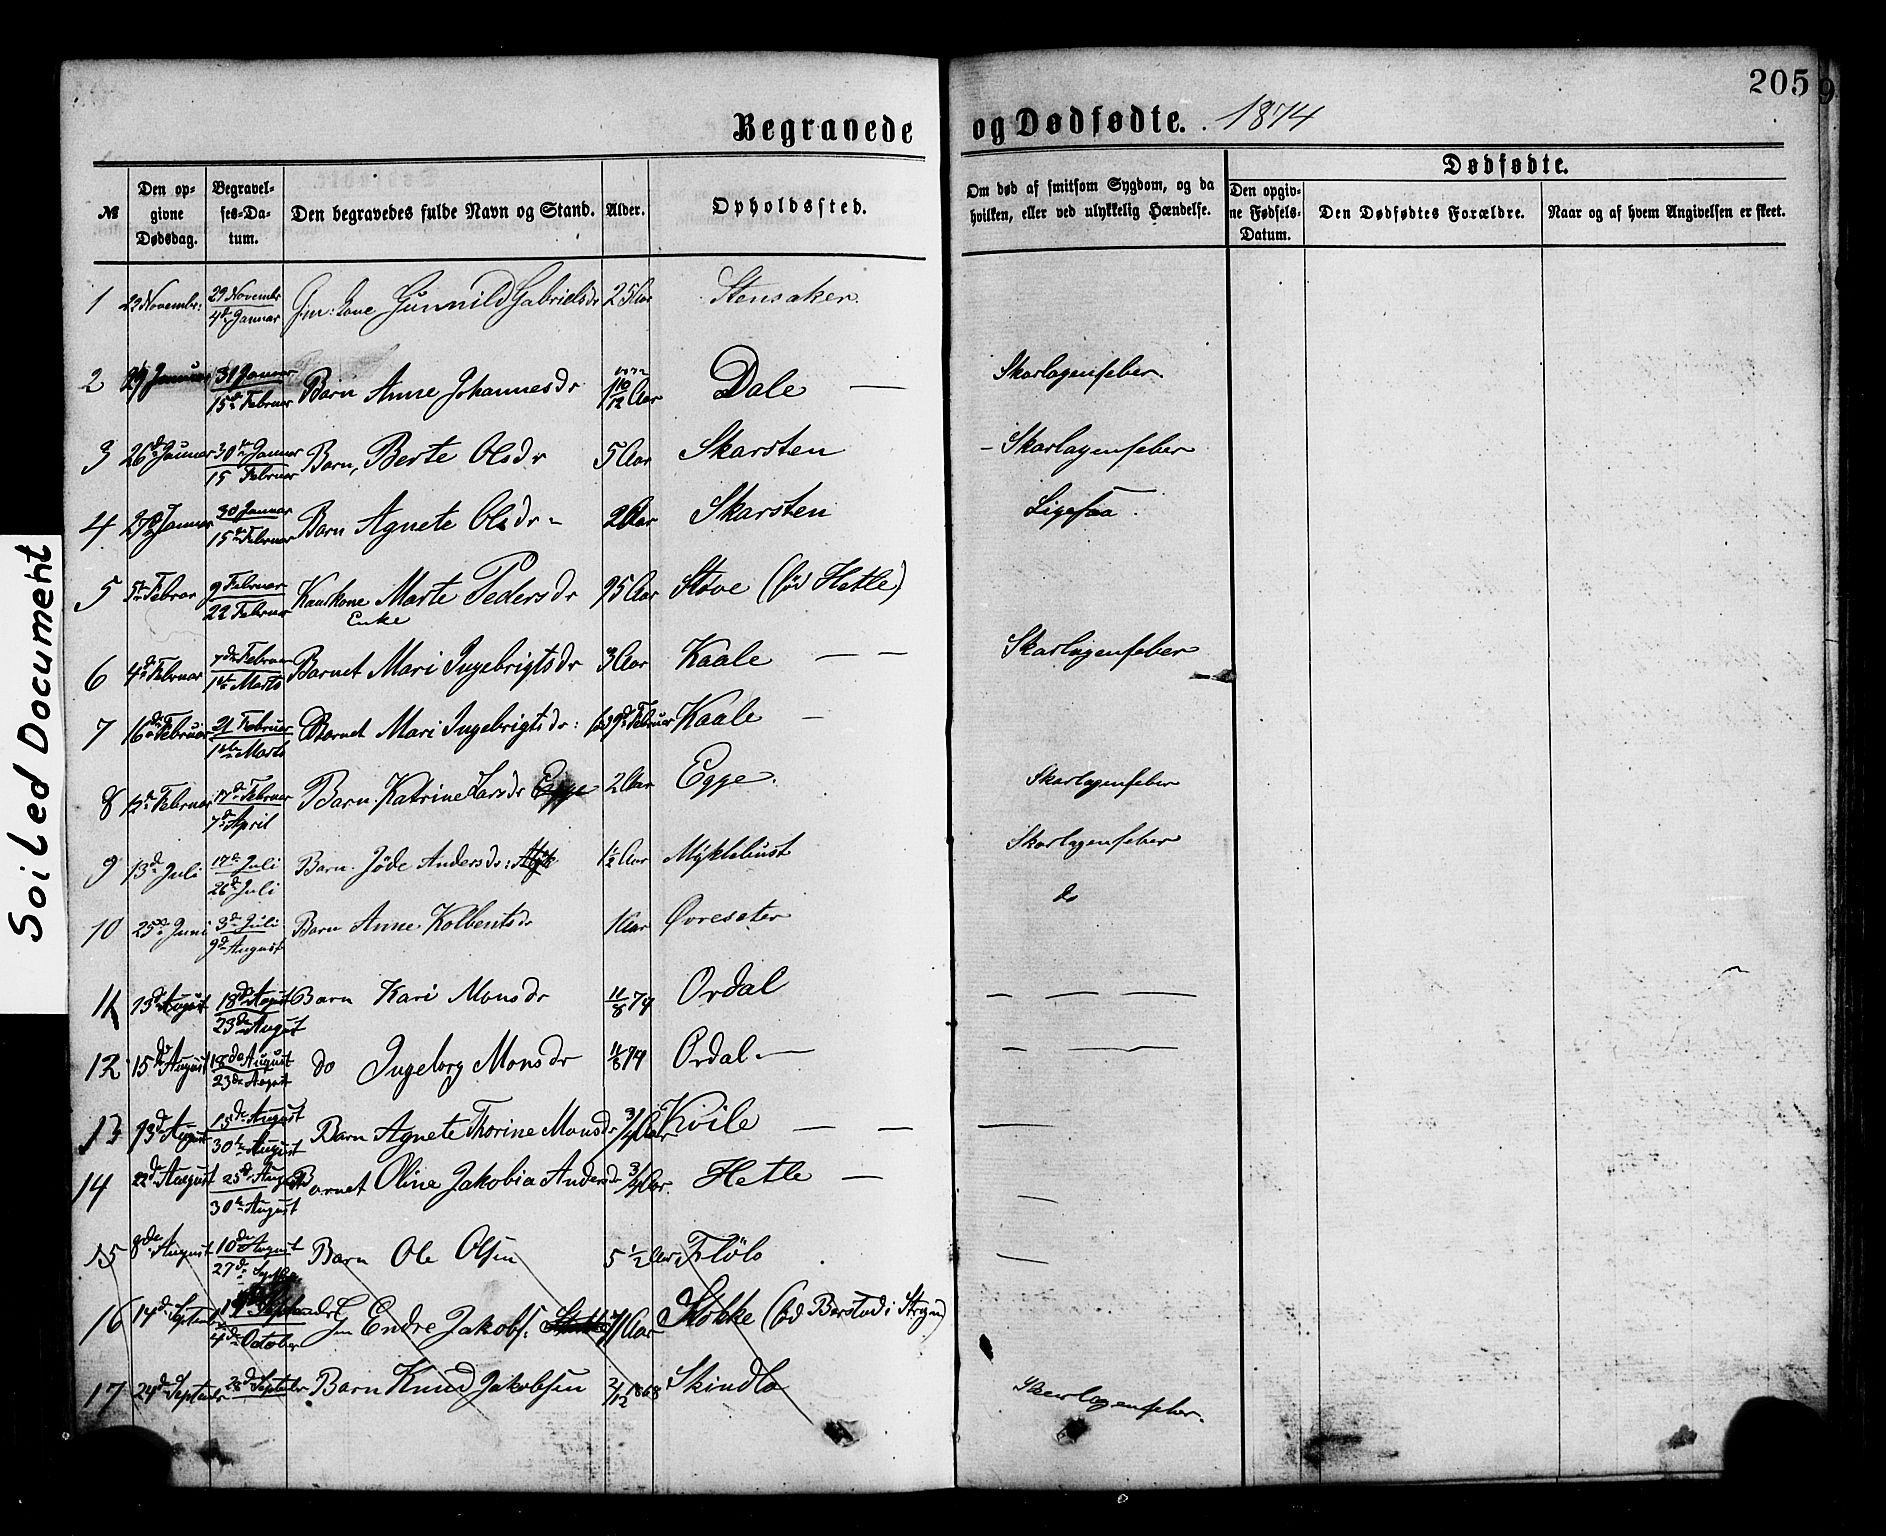 205
Begravede og Dødfødte. 1874
Dødfødte.
№ Den opgivne Dødsdag. Begravelses-Datum. Den begravedes fulde Navn og Stand. Alder. Opholdssted. Om død af smitsom Sygdom, og da hvilken, eller ved ulykkelig Hændelse. Den opgivne Fødsels-Datum. Den Dødfødtes Forældre. Naar og af hvem Angivelsen er skeet.
1 22 Novembr: 29 Novembr 4de Januar Gm: Kone Gunnild Gabrielsdr 25 Aar Stensaker
2 29 Januar 31 Januar 15de Februar Barn Anne Johannesdr 1 10/12 Aar Dale — Skarlagensfeber.
3 26de Januar 30te Januar 15 Februar Barn, Berte Olsdr 5 Aar Skarsten – Skarlagensfeber
4 27de Januar 30 Januar 15de Februar Barn Agnete Olsdr 2 Aar Skarsten Ligesaa.
5 5te Februar 9 Februar 22 Februar Kaarkone Marte Pedersdr 95 Aar Støve (fød Hetle)
Enke
6 4de Februar 7de Februar 1ste Marts Barnet Mari Ingebrigtsdr 3 Aar Kaale — — Skarlagensfeber
7 16de Februar 21 Februar 1ste Marts Barnet Mari Ingebrigtsdr: fød 9de Februar Kaale —
8 12de Februar 17de Februar 7de April Barn. Katrine Larsdr Egge 2 Aar Egge. Skarlagensfeber
9 13de Juli 17de Juli 26de Juli Barn. Jöde Andersdr: 1½ Aar Myklebust Skarlagensfeber
10 25de Juni 3de Juli 9de August Barn Anne Kolbentsdr 1 Aar Øvreseter do
11 15de August 18de August 23de August Barn Kari Monsdr 11/8 74 Ordal — — —
12 15de August 18de August 23de August do Ingeborg Monsdr 11/8 74 Ordal — — —
13 13de August 15de August 30te August Barn Agnete Thorine Monsdr 3/4 Aar Kvile — — —
14 22de August 25de August 30te August Barnet Oline Jakobia Andersdr 3/4 Aar. Hetle — —
15 8de August 10de August 27de Septbr Barn Ole Olsen 5 ½ Aar Flölo —
16 14de September 19de September 4de October Gm Endre Jakobs: 71 Aar Stokke (fød Berstad i Stryn)
17 24de September 28de September Barn Knud Jakobsen 2/12 1868 Skindlo Skarlagensfeber.
Soiled Document